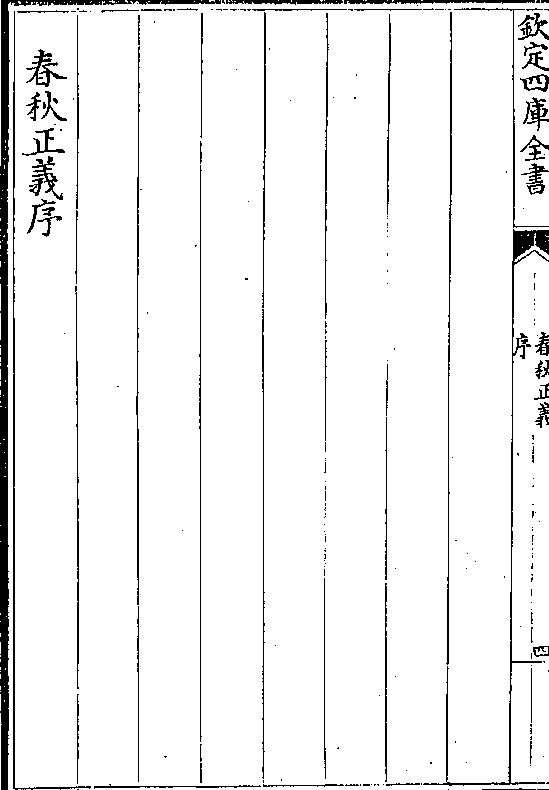 欽定四庫全書
春秋正義
序
四
春秋正義序